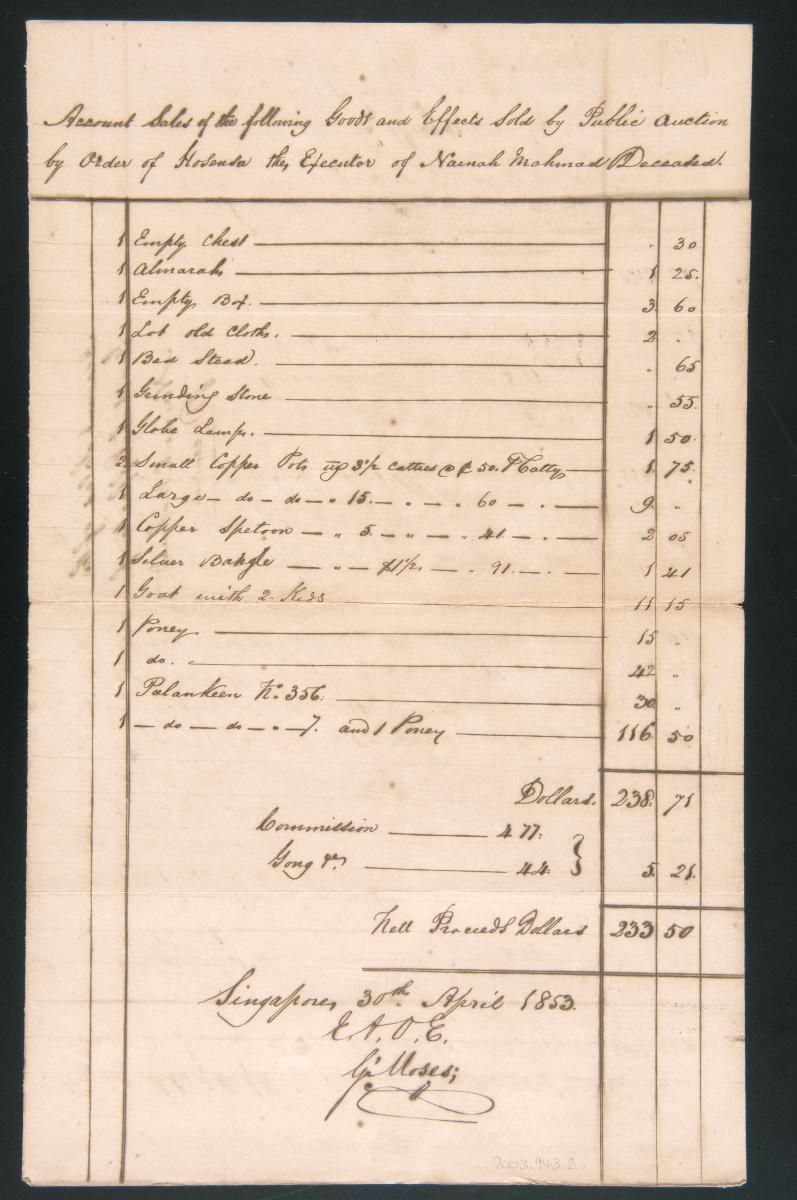 Account Sales of the following Goods and Effects Sold by Public Auction
by Order of Hosensa the Executor of Nainah Mahmad Deceased.
1 Empty Chest — " 30
1 Almarah — 1 25.
1 Empty Box. — 3. 60
1 Lot old Cloths. — 2 "
1 Bed Stead. — " 65
1 Grinding Stone — " 55.
1 Globe Lamp. — 1 50.
2. Small Copper Pots wg 3 1/2 Catties @ ¢ 50. ⅌ Catty — 1. 75.
1 Large — do — do — " 15. — " — " 60 — " — 9. "
1 Copper Spetoon — " 5. — " — " 41 — " — 2 05
1 Silver Bangle — " — $1 1/2. — " 91. — " — 1 41
1 Goat with 2. Kids 11 15
1 Poney. — 15 "
1 do. " — 42 "
1 Palankeen No. 356. — 30. "
1 — do — do — " — 7. and 1 Poney — 116 50
Dollars. 238. 71
Commission — 4 77.
Gong &c. — 44. } 5. 21.
Nett Proceeds Dollars 233 50
Singapore, 30th April 1853.
E. A. O. E.
G. Moses;
2003.943.2